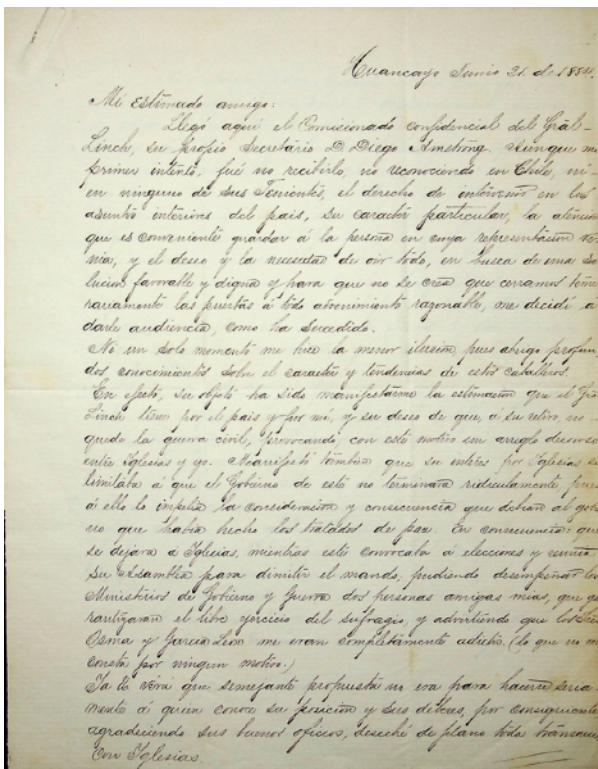 Huancayo Junio 21. de 1884.
Mi estimado amigo:
Llegó aquí el Comicionado confidencial del Gral
Linch, su propio Secretario D. Diego Amstong. Aunque mi
primer intento, fué no recibirlo, no reconociendo en Chile, ni
en ninguno de sus Tenientes, el derecho de intervenir en los
asuntos interiores del pais, su caracter particular, la atencion
que es conveniente guardar á la persona en cuya representacion ve-
nia, y el deseo y la necesidad de oir todo, en busca de una so-
lucion favorable y digna y para que no se crea que cerramos teme-
rariamente las puertas á todo advenimiento razonable, me decidí á
darle audiencia, como ha sucedido.
No un solo momento me hice la menor ilusion, pues abrigo profun-
dos conocimientos sobre el caracter y tendencias de estos caballeros.
En efecto, su objeto ha sido manifestarme la estimacion que el Gral
Linch tiene por el pais y por mí, y su deseo de que, á su retiro, no
quede la guerra civil, provocando, con este motivo un arreglo decoroso
entre Iglesias y yo. Manifestó tambien que su interes por Iglesias se
limitaba á que el Gobierno de este no terminara ridiculamente, pues
á ello lo impelia la consideracion y consecuencia que debian al gobier-
no que habia hecho los tratados de paz. En consecuencia: que
se dejara á Iglesias, mientras este convocaba á elecciones y reunia
su Asamblea para dimitir el mando, pudiendo desempeñar los
Ministerios de Gobierno y Guerra dos personas amigas mias, que ga-
rantizaran el libre ejercicio del sufragio, y advirtiendo que los
Osma y Garcia Leon me eran completamente adictos. (lo que no me
consta por ningun motivo.)
Ya U. verá que semejante propuesta no era para hacerse seria-
mente á quien conoce su posicion y sus deberes, por consiguiente
agradeciendo sus buenos oficios, deseché de plano toda transaccion
con Iglesias.